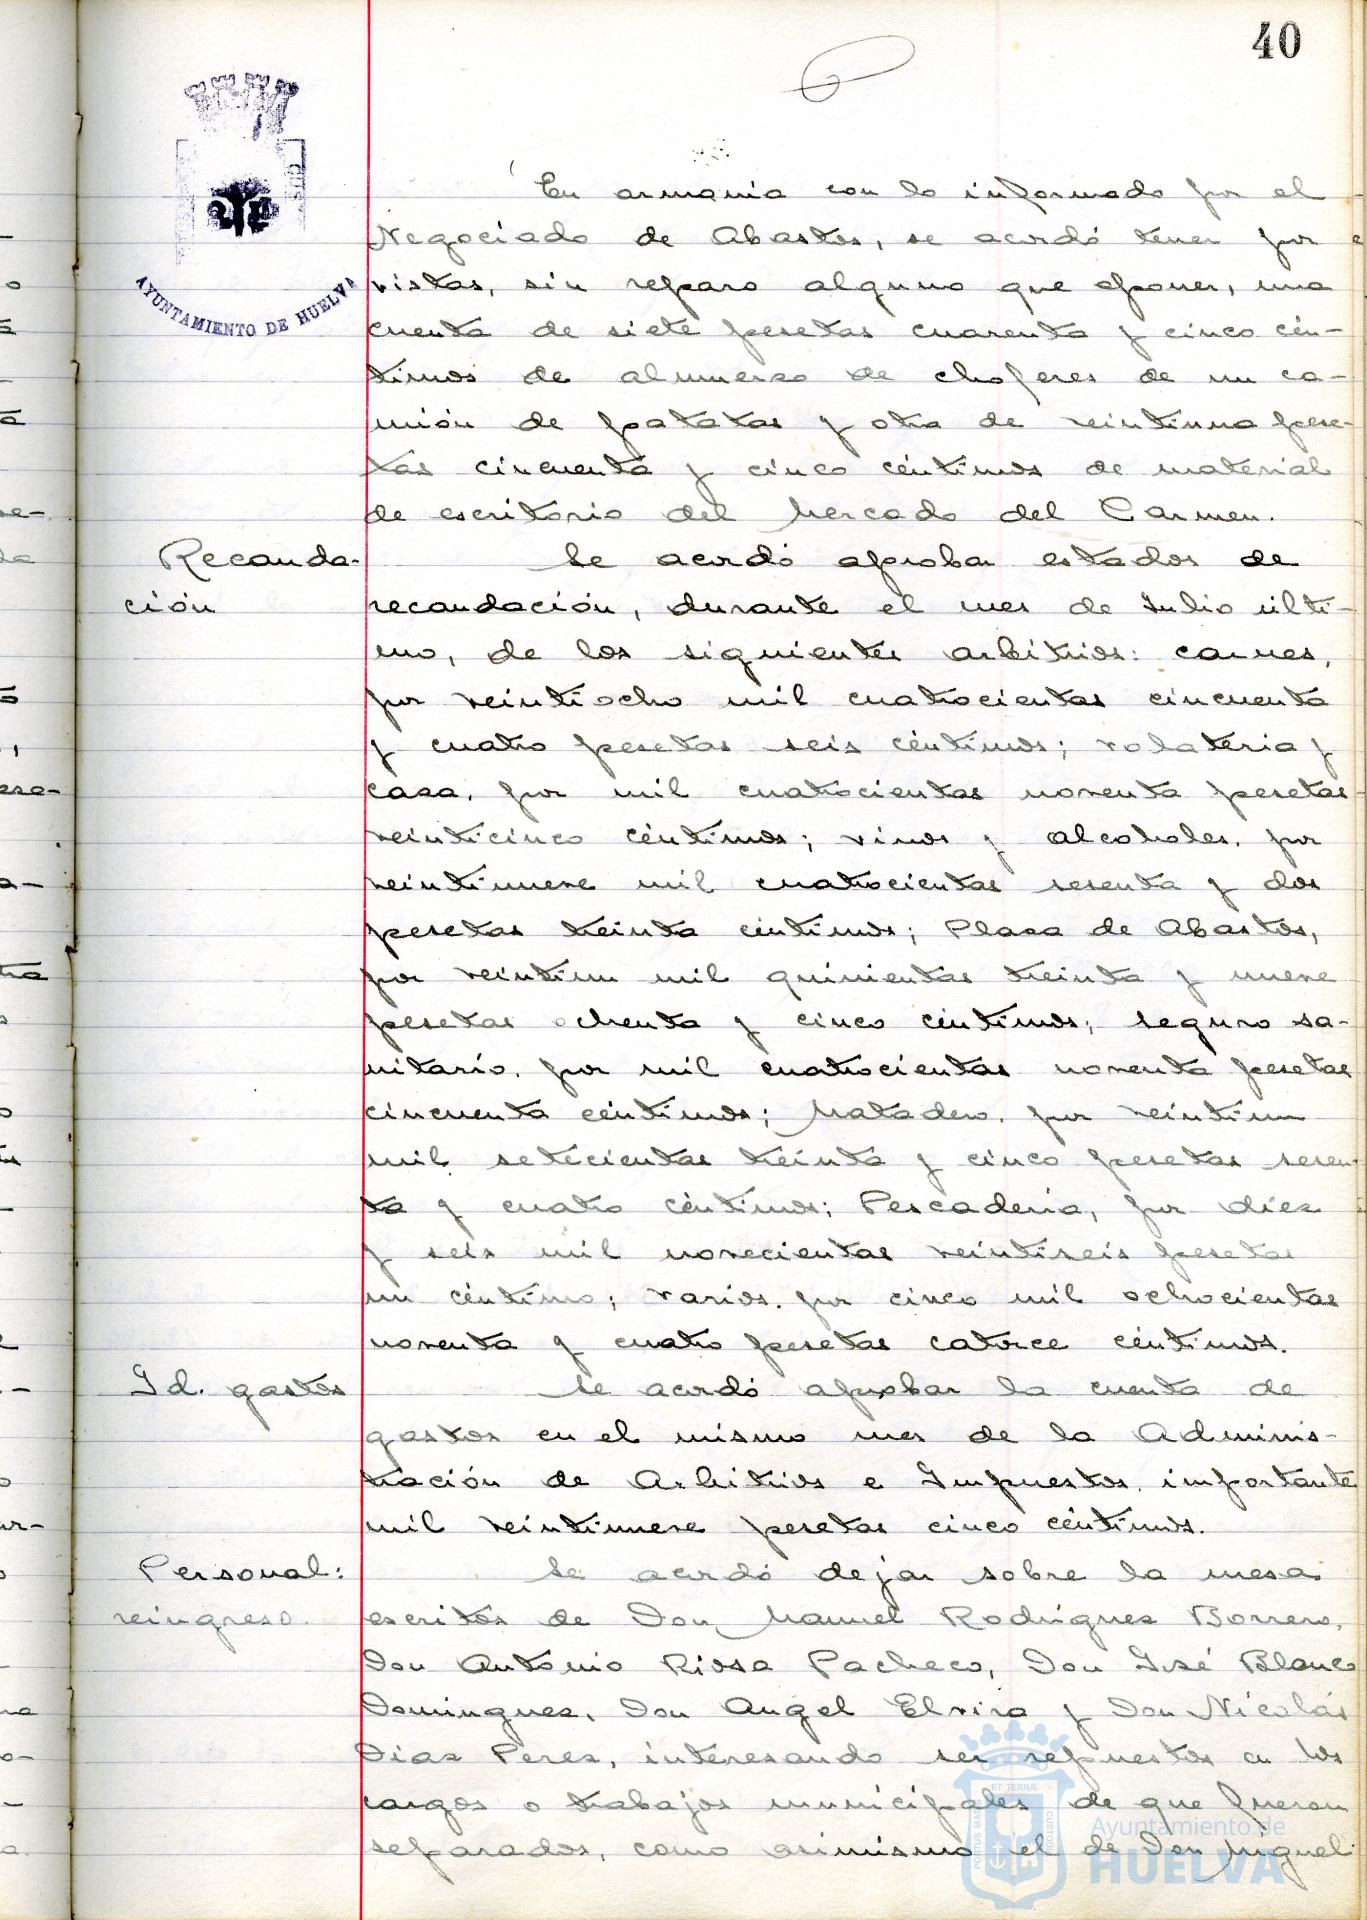 40
AYUNTAMIENTO DE HUELVA
En armonia con lo informado por el
Negociado de Abastos, se acordó tener por
vistas, sin reparo alguno que oponer, una
cuenta de siete pesetas cuarenta y cinco cén-
timos de almuerzo de choferes de un ca-
mión de patatas y otra de veintiuna pese-
tas cincuenta y cinco céntimos de material
de escritorio del Mercado del Carmen.
Recauda-
ción
Se acordó aprobar estados de
recaudación, durante el mes de Julio últi-
mo, de los siguientes arbitrios: carnes,
por veintiocho mil cuatrocientas cincuenta
y cuatro pesetas seis céntimos; volateria y
caza, por mil cuatrocientas noventa pesetas
veinticinco céntimos; vinos y alcoholes, por
veintinueve mil cuatrocientas sesenta y dos
pesetas treinta céntimos; Plaza de Abastos,
por veintiun mil quinientas treinta y nueve
pesetas ochenta y cinco céntimos; Seguro sa-
nitario, por mil cuatrocientas noventa pesetas
cincuenta céntimos; Matadero, por veintiun
mil setecientas treinta y cinco pesetas sesen-
ta y cuatro céntimos; Pescaderia, por diez
y seis mil novecientas veintiseis pesetas
un céntimo; varios, por cinco mil ochocientas
noventa y cuatro pesetas catorce céntimos.
Id. gastos
Se acordó aprobar la cuenta de
gastos en el mismo mes de la Adminis-
tración de Arbitrios e Impuestos, importante
mil veintinueve pesetas cinco céntimos.
Personal:
reingreso.
Se acordó dejar sobre la mesa
escritos de Don Manuel Rodríguez Borrero,
Don Antonio Rivsa Pacheco, Don José Blanco
Dominguez, Don Angel Elvira y Don Nicolás
Diaz Perez, interesando ser repuestos en los
cargos o trabajos municipales de que fueron
separados, como asimismo el de Don Miguel
Ayuntamiento de
HUELVA